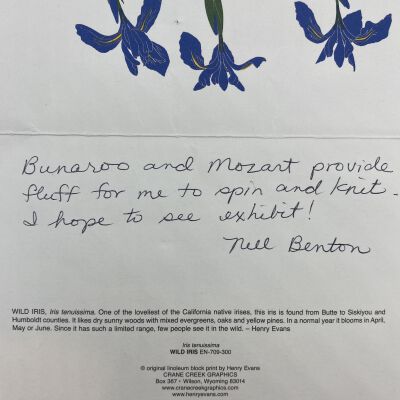 Bunaroo and Mozart provide
fluff for me to spin and knit -
I hope to see exhibit!
Nell Benton
WILD IRIS, Iris tenuissima. One of the loveliest of the California native irises, this iris is found from Butte to Siskiyou and
Humboldt counties. It likes dry sunny woods with mixed evergreens, oaks and yellow pines. In a normal year it blooms in April,
May or June. Since it has such a limited range, few people see it in the wild. – Henry Evans
Iris tenuissima
WILD IRIS EN-709-300
© original linoleum block print by Henry Evans
CRANE CREEK GRAPHICS
Box 387 • Wilson, Wyoming 83014
www.cranecreekgraphics.com
www.henryevans.com